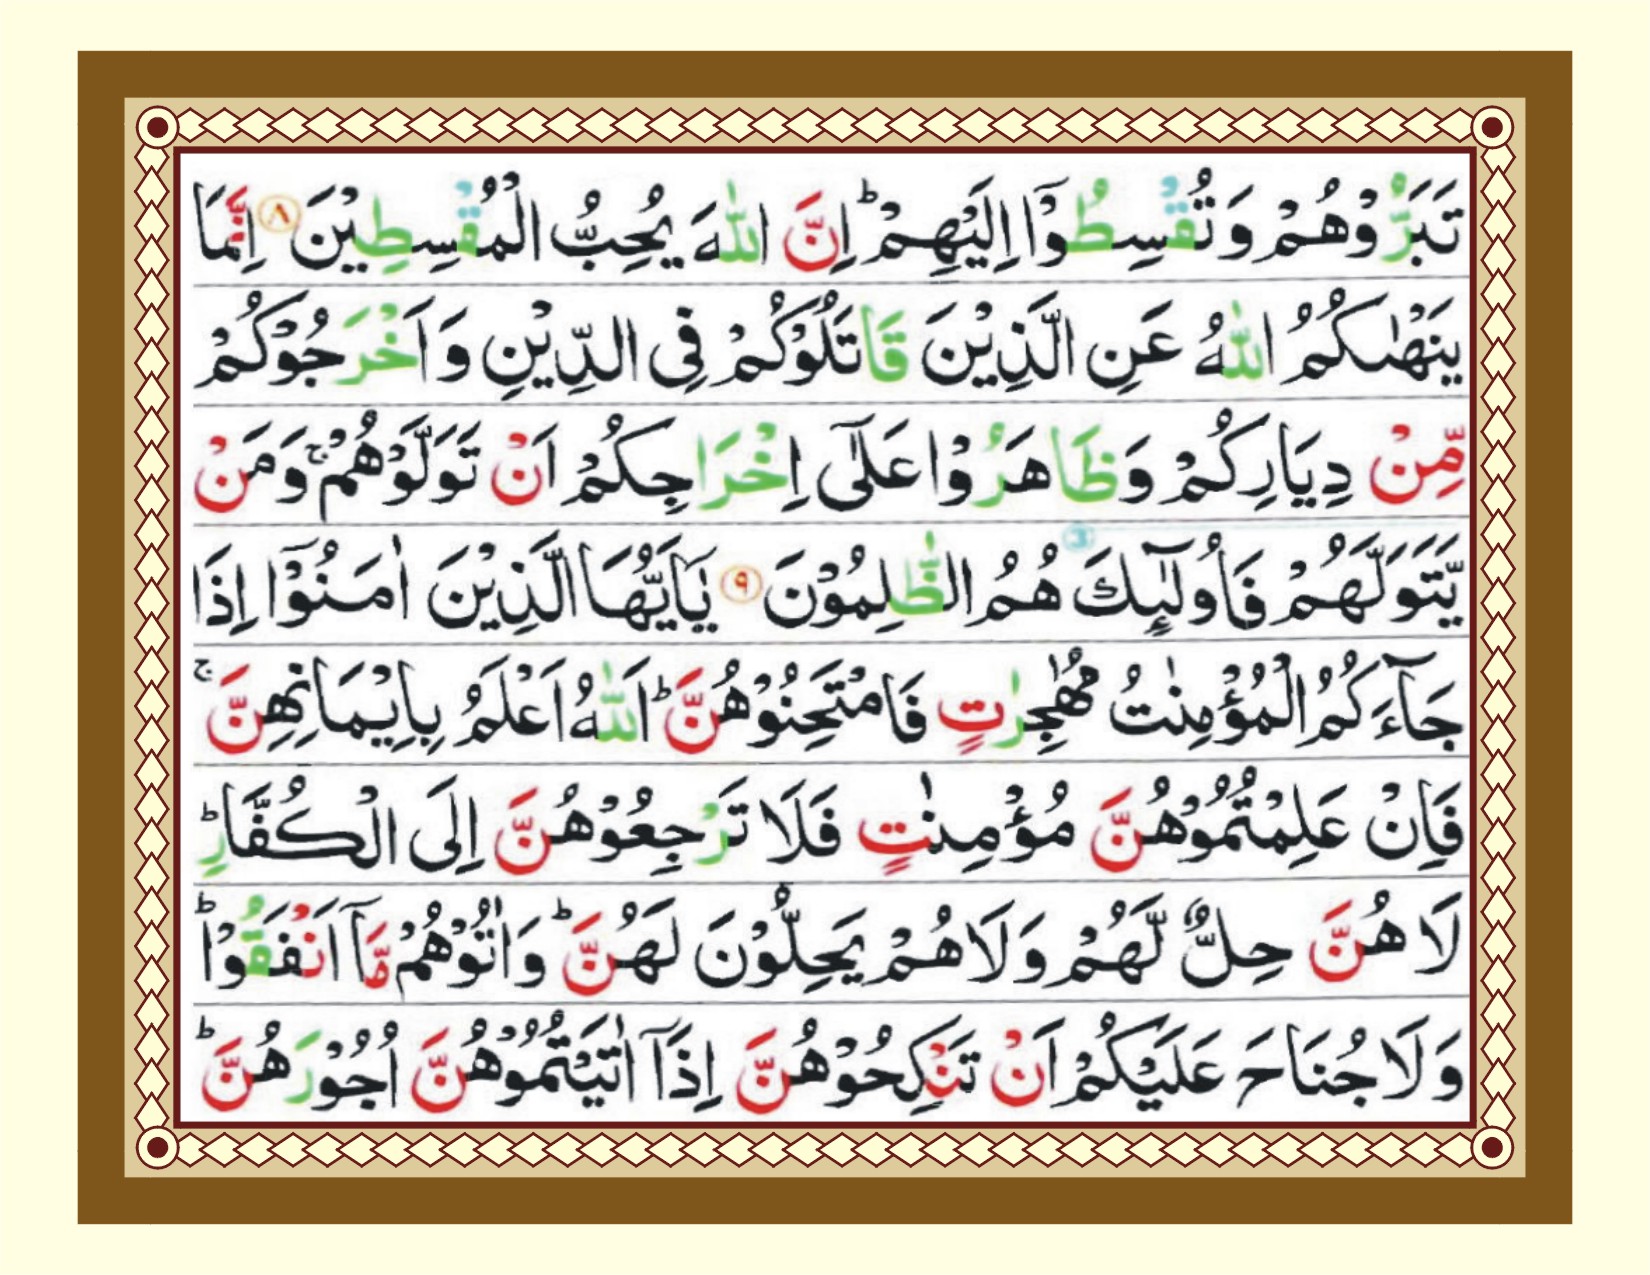 تَبَرُّوْهُمْ وَتُقْسِطُوْۤا اِلَيْهِمْ ؕ اِنَّ اللّٰهَ يُحِبُّ الْمُقْسِطِيْنَ ۸ اِنَّمَا
يَنْهٰىكُمُ اللّٰهُ عَنِ الَّذِيْنَ قَاتَلُوْكُمْ فِى الدِّيْنِ وَاَخْرَجُوْكُمْ
مِّنْ دِيَارِكُمْ وَظَاهَرُوْا عَلٰٓى اِخْرَاجِكُمْ اَنْ تَوَلَّوْهُمْ ۚ وَمَنْ
يَّتَوَلَّهُمْ فَاُولٰٓئِكَ هُمُ الظّٰلِمُوْنَ ۹ يٰۤاَيُّهَا الَّذِيْنَ اٰمَنُوْۤا اِذَا
جَآءَكُمُ الْمُؤْمِنٰتُ مُهٰجِرٰتٍ فَامْتَحِنُوْهُنَّ ؕ اَللّٰهُ اَعْلَمُ بِاِيْمَانِهِنَّ ۚ
فَاِنْ عَلِمْتُمُوْهُنَّ مُؤْمِنٰتٍ فَلَا تَرْجِعُوْهُنَّ اِلَى الْكُفَّارِ ؕ
لَا هُنَّ حِلٌّ لَّهُمْ وَلَا هُمْ يَحِلُّوْنَ لَهُنَّ ؕ وَاٰتُوْهُمْ مَّاۤ اَنْفَقُوْا ؕ
وَلَا جُنَاحَ عَلَيْكُمْ اَنْ تَنْكِحُوْهُنَّ اِذَاۤ اٰتَيْتُمُوْهُنَّ اُجُوْرَهُنَّ ؕ